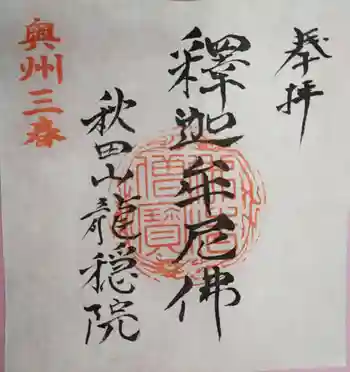 奉拝
釋迦牟尼佛
秋田山龍穏院
奥州三春